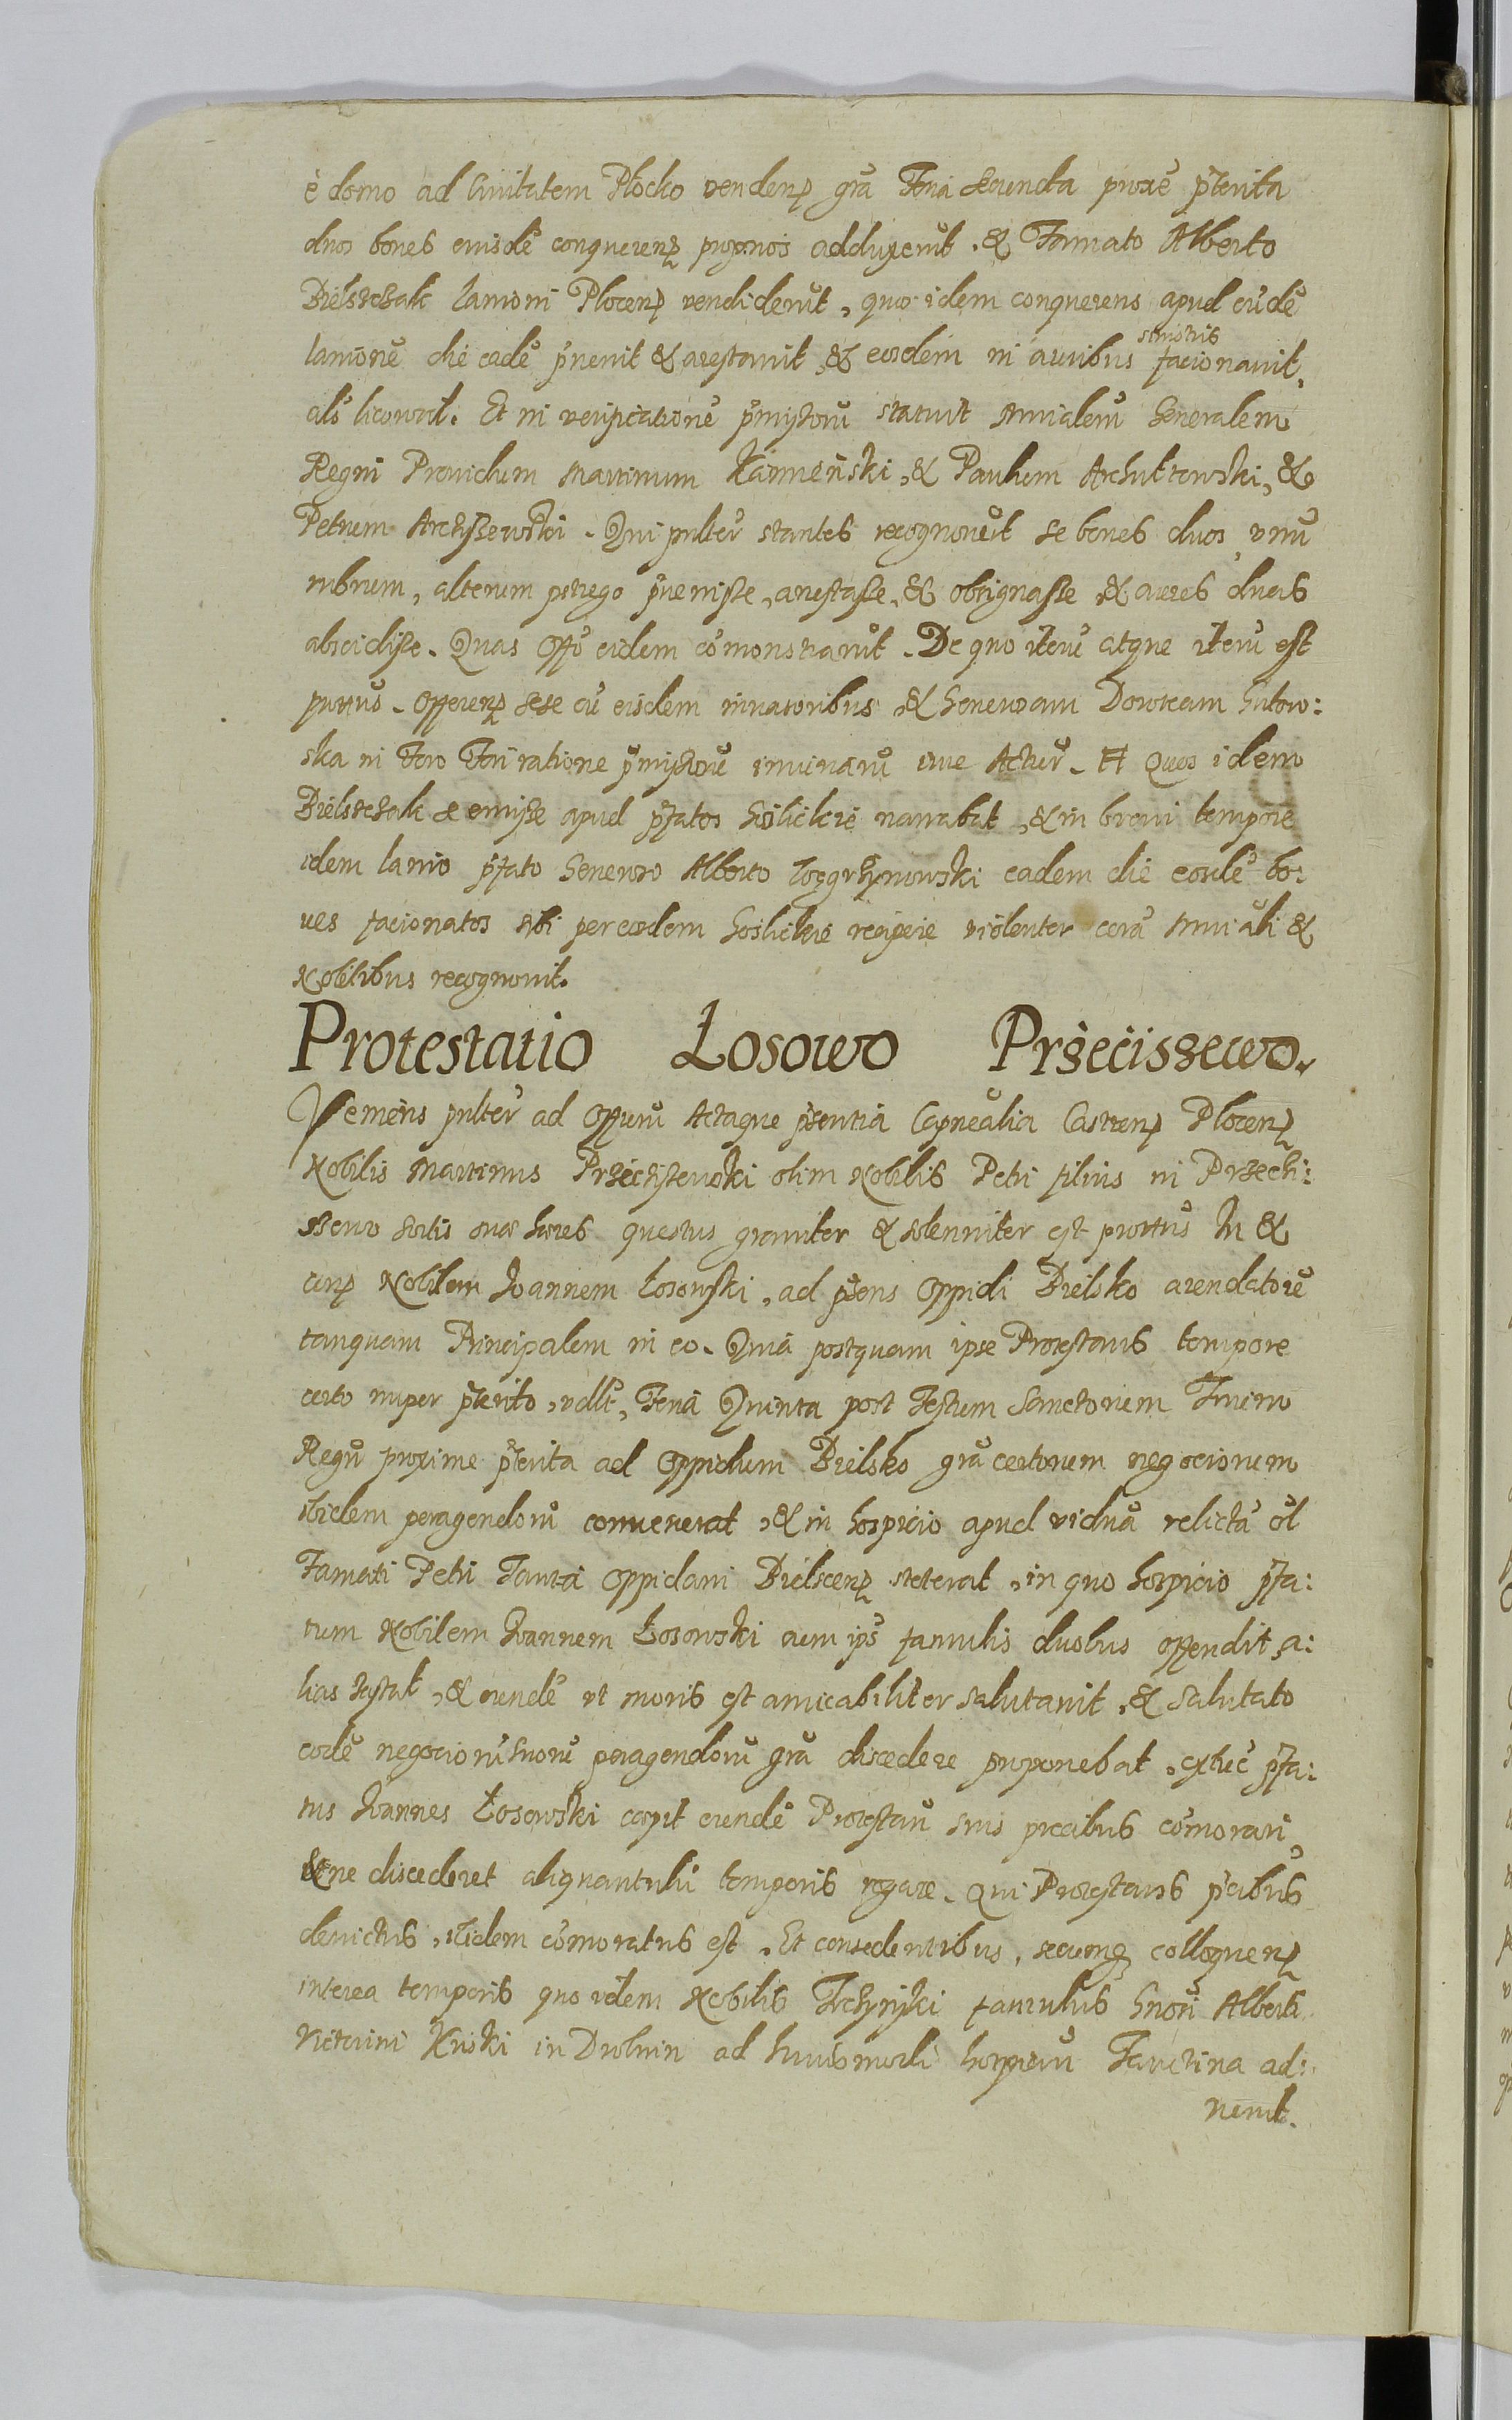 è domo ad Ciuitatem Płocko vendenꝭ grã Feria Secunda proxe p̃terita
duos boues eiusdẽ conquerenꝭ proprios adduxerũt. & Famato Alberto
Bielszchak lanioni Plocenꝭ vendiderũt, quos idem conquerens apud eũdẽ
lanionẽ die eadẽ p̃uenit & arestauit, & eosdem in auribus sinistris facionauit,
als licował. Et in verificationẽ p̃missorũ statuit Mnialem Generalem
Regni Prouidum Martinum Kamieński, & Paulum &
Petrum Qui pnlter stantes recognouerũt se boues duos, vnũ
rubrum, alterum pstrego p̃uenisse, arestasse, & obsignasse & aures duas
abscidisse. Quas Offõ eidem cõmonstrarũt. De quo iterũ atque iterũ est
prottus. Offerenꝭ sese cũ eisdem & Generosam Doroteam
ska in Foro Fori ratione p̃missorũ iniuriarũ iure Acturũ. Et Quos idem
Bielszchak se emisse apud p̃fatos narrabat, & in breui tempore
idem lanio p̃fato Generoso Alberto eadem die eosdẽ bo:
ues facionatos sibi per eosdem recipere violenter corã Mniali &
Nobilibus recognouit.
Protestatio Łosowo Przeciszewo.
Veniens pnlter ad Offium Actaque p̃sentia Capnealia Castrenꝭ Plocenꝭ
Nobilis Martinus Przeciszewski olim Nobilis Petri filius in Przeczi:
szewo sortis suæ hæres questus grauiter & solenniter est prottus In &
cõnꝭ Nobilem Ioannem Łosowski, ad p̃sens Oppidi Bielsko arendatorẽ
tanquam Principalem in eo. Quia postquam ipse Protestans tempore
certo nuper p̃terito, vdlt, Feria Quinta post Festum Sanctorum Trium
Regũ proxime p̃terita ad Oppidum Bielsko grã certorum negociorum
ibidem peragendorũ conuenerat, & in hospicio apud viduã relictã ol
Famati Petri oppidani Bielscenꝭ steterat, in quo hospicio p̃fa:
tum Nobilem Ioannem Łosowski cum ips famulis duobus offendit, a:
lias zastał, & eundẽ vt moris est amicabiliter salutauit, & salutato
eodẽ negociorũ suorũ peragendorũ grã discedere proponebat, extũc p̃fa:
tus Ioannes Łosowski cæpit eundẽ Protestan̄ suis precibus cõmorari,
& ne discederet aliquantuli temporis rogare. Qui Protestans p̃cibus
deuictus, ibidem cõmoratus est. Et consedentibus, secumq colloquenꝭ
interea temporis quo idem Nobilis famulus Gnosi Alberti
Victorini Kriski in Drobnin ad huiusmodi hospiciũ ad:
uenit.